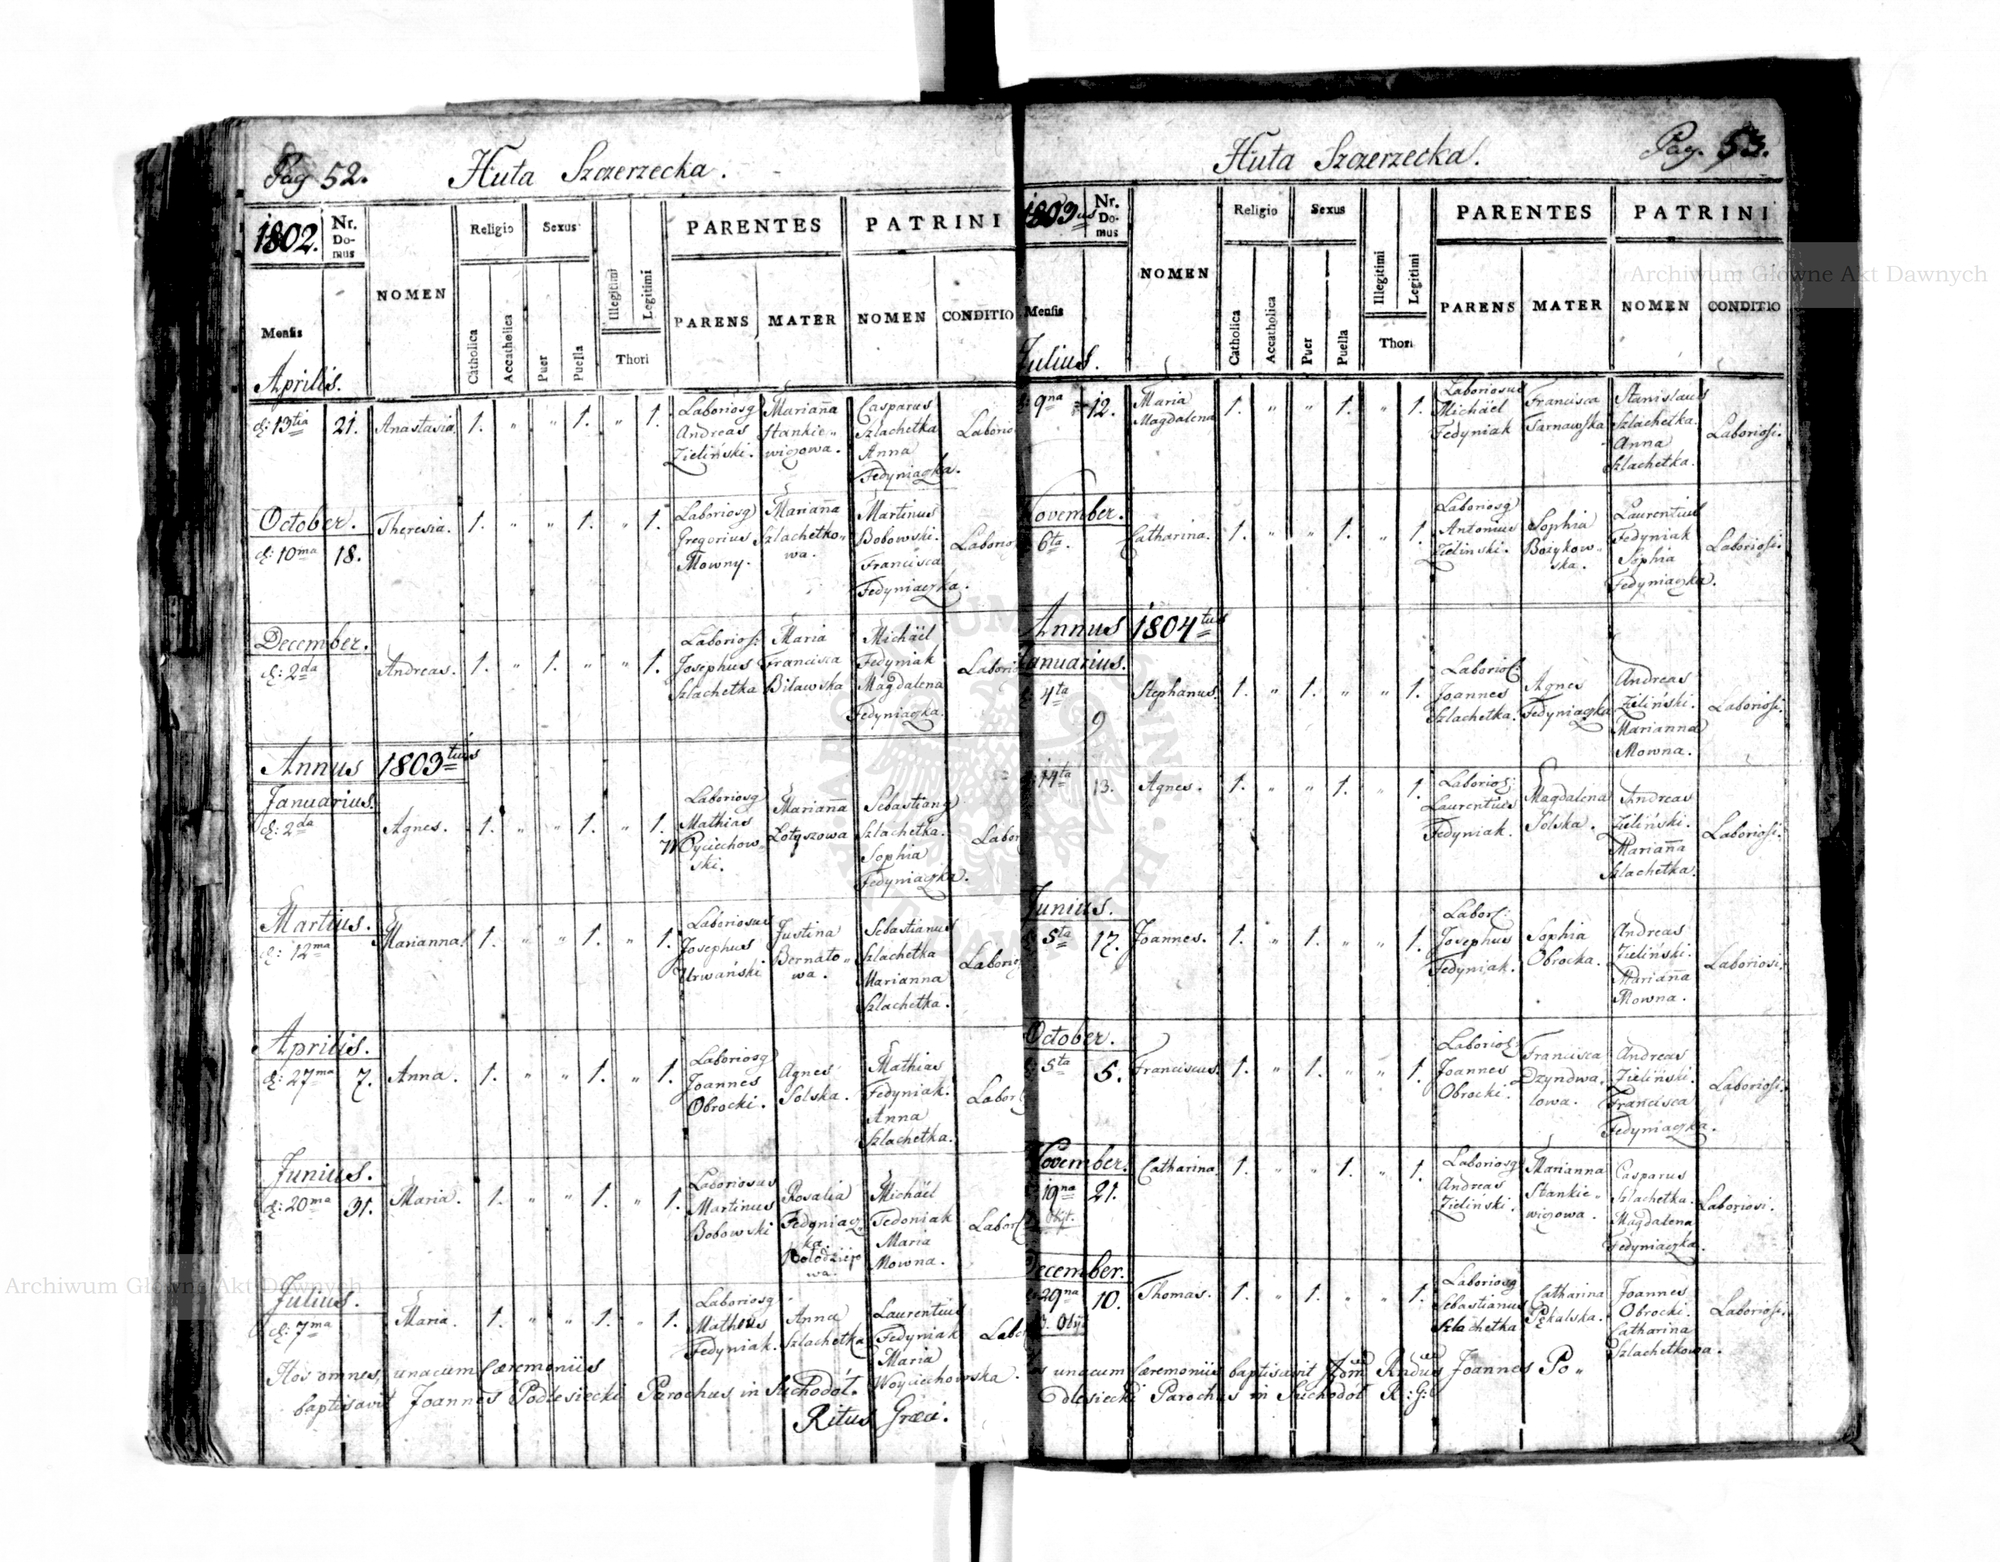 Pag 52. Huta Szczerzecka.
1802. Nr. Domus NOMEN Religio Sexus Illegitimi Legitimi PARENTES PATRINI
Mensis Catholica Accatholica Puer Puella Thori PARENS MATER NOMEN CONDITIO
Aprilis.
d: 13tia 21. Anastasia. 1. " " 1. " 1. Laboriosg Andreas Zieliński. Marianna Stankiewiczowa. Casparus Szlachetka Anna Fedyniaczka. Laborio
October.
d: 10ma 18. Theresia. 1. " " 1. " 1. Laboriosg Gregorius Mowny. Marianna Szlachetkowa. Martinus Bobowski. Francisca Fedyniaczka. Laborio
December.
d: 2da Andreas. 1. " 1. " " 1. Laborios: Josephus Szlachetka Maria Francisca Bilawska Michäel Fedyniak Magdalena Fedyniaczka. Labori
Annus 1803tius
Januarius.
d: 2da Agnes. 1. " " 1. " 1. Laboriosg Mathias Wyciechowski. Marianna Łotyszowa Sebastiang Szlachetka. Sophia Fedyniaczka. Labor
Martius.
d: 12ma Marianna. 1. " " 1. " 1. Laboriosus Josephus Urwański Justina Bernatowa. Sebastianus Szlachetka Marianna Szlachetka. Laborio
Aprilis.
d: 27ma 7. Anna. 1. " " 1. " 1. Laboriosg Joannes Obrocki. Agnes Solska. Mathias Fedyniak. Anna Szlachetka. Labor
Junius.
d: 20ma 31. Maria. 1. " " 1. " 1. Laboriosus Martinus Bobowski Rosalia Fedyniaczka. Michäel Fedoniak Maria Mowna. Labor
Julius.
d: 7ma Maria. 1. " " 1. " 1. Laboriosg Matheus Fedyniak. Anna Szlachetka Laurentius Fedyniak Maria Woyciechowska. Labor
Hos omnes, unacum Cæremoniis
baptisavit Joannes Podlesiecki Parochus in Suchodół.
Ritus Græci.
Huta Szczerzecka. Pag. 53.
1803us Nr. Domus NOMEN Religio Sexus Illegitimi Legitimi PARENTES PATRINI
Mensis Catholica Accatholica Puer Puella Thori PARENS MATER NOMEN CONDITIO
Julius.
9na 12. Maria Magdalena 1. " " 1. " 1. Laboriosus Michäel Fedyniak Francisca Tarnawska Stanislaus Szlachetka. Anna Szlachetka. Laboriosi.
November.
6ta. Catharina. 1. " " 1. " 1. Laboriosg Antonius Zieliński. Sophia Bozykowska. Laurentius Fedyniak Sophia Fedyniaczka. Laboriosi.
Annus 1804tus
Januarius.
4ta 9 Stephanus. 1. " 1. " " 1. Laborios: Joannes Szlachetka. Agnes Fedyniaczka Andreas Zieliński. Marianna Mowna. Laboriosi.
14ta 13. Agnes. 1. " " 1. " 1. Laborios: Laurentius Fedyniak. Magdalena Solska. Andreas Zieliński. Marianna Szlachetka. Laboriosi.
Junius.
5ta 17. Joannes. 1. " 1. " " 1. Labors: Josephus Fedyniak. Sophia Obrocka. Andreas Zieliński. Marianna Mowna. Laboriosi.
October.
5ta 5. Franciscus. 1. " 1. " " 1. Laborios: Joannes Obrocki. Francisca Dzyndwalowa. Andreas Zieliński. Francisca Fedyniaczka. Laboriosi.
November.
19na 21. Catharina. 1. " " 1. " 1. Laboriosg Andreas Zieliński. Marianna Stankiewiczowa. Casparus Szlachetka. Magdalena Fedyniaczka. Laboriosi.
December.
29na 10. Thomas. 1. " 1. " " 1. Laboriosg Sebastianus Szlachetka Catharina Pękalska. Joannes Obrocki. Catharina Szlachetkowa. Laboriosi.
unacum Cæremoniis baptisavit Rndus Joannes Po-
dlesiecki Parochus in Suchodół R: G:
Archiwum Główne Akt Dawnych
Archiwum Główne Akt Dawnych